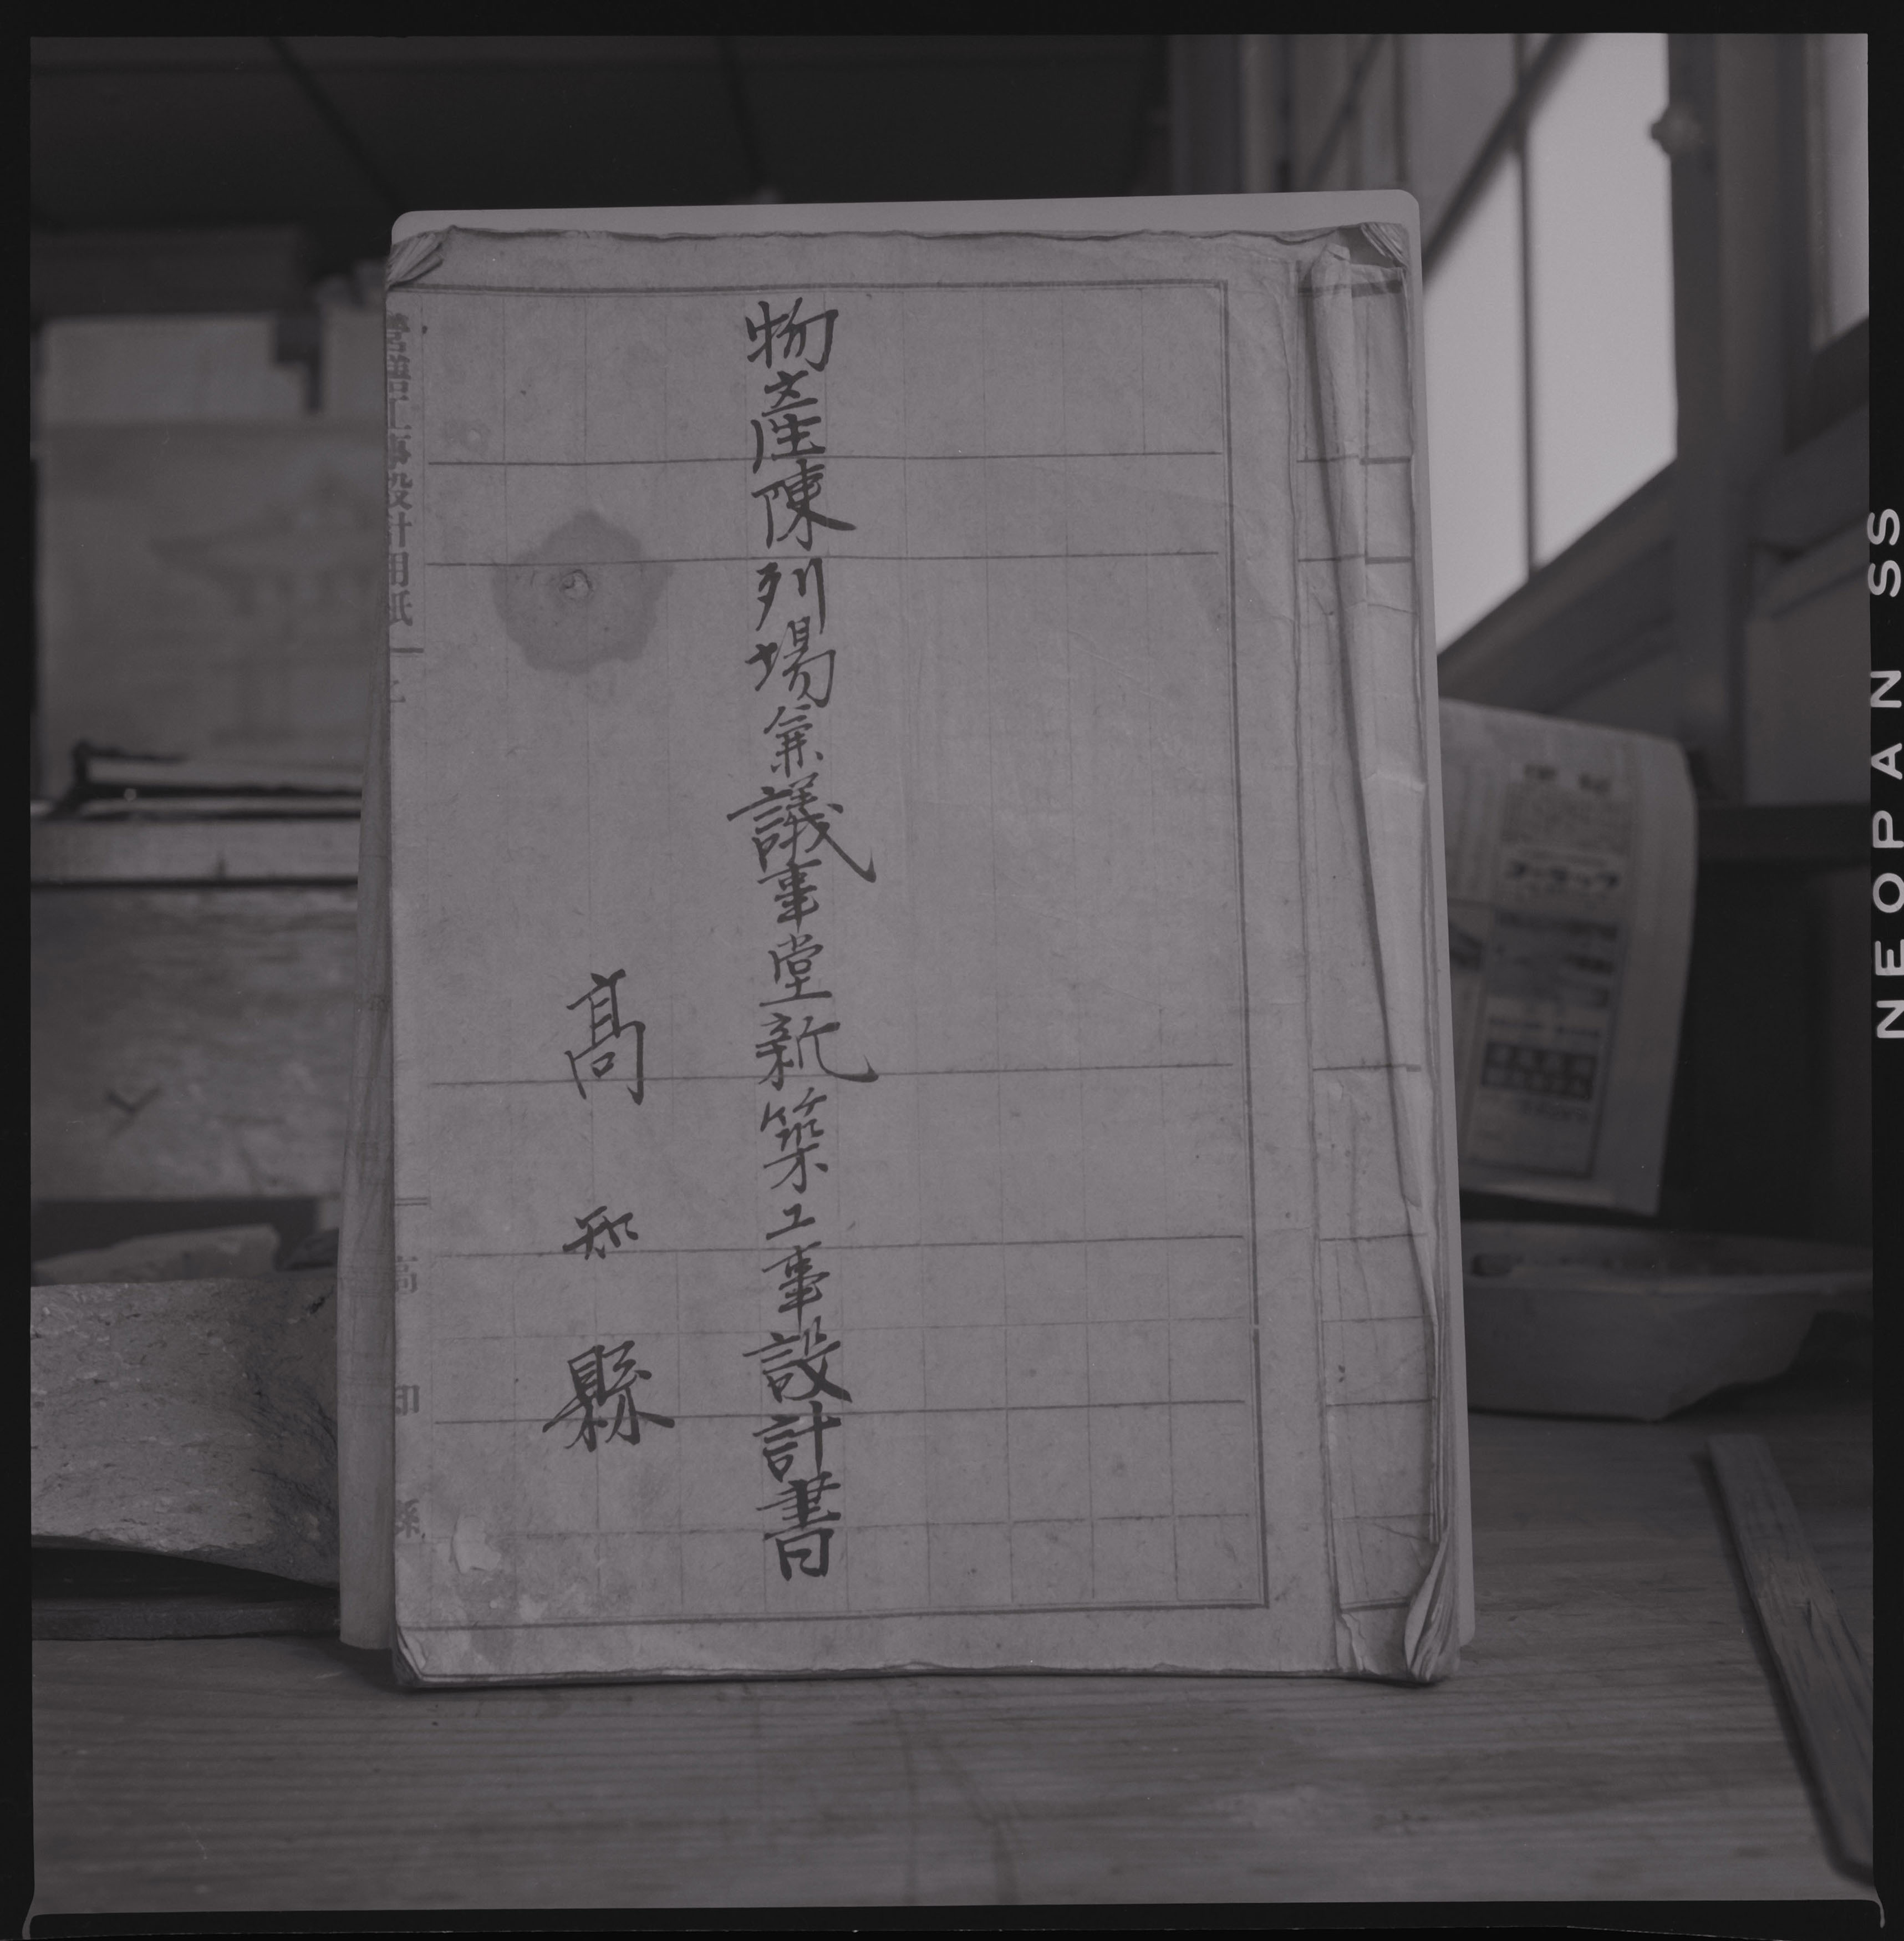 物產陳列場兼議事堂新築工事設計書
高知縣
營繕工事設計用紙
高知縣
NEOPAN SS